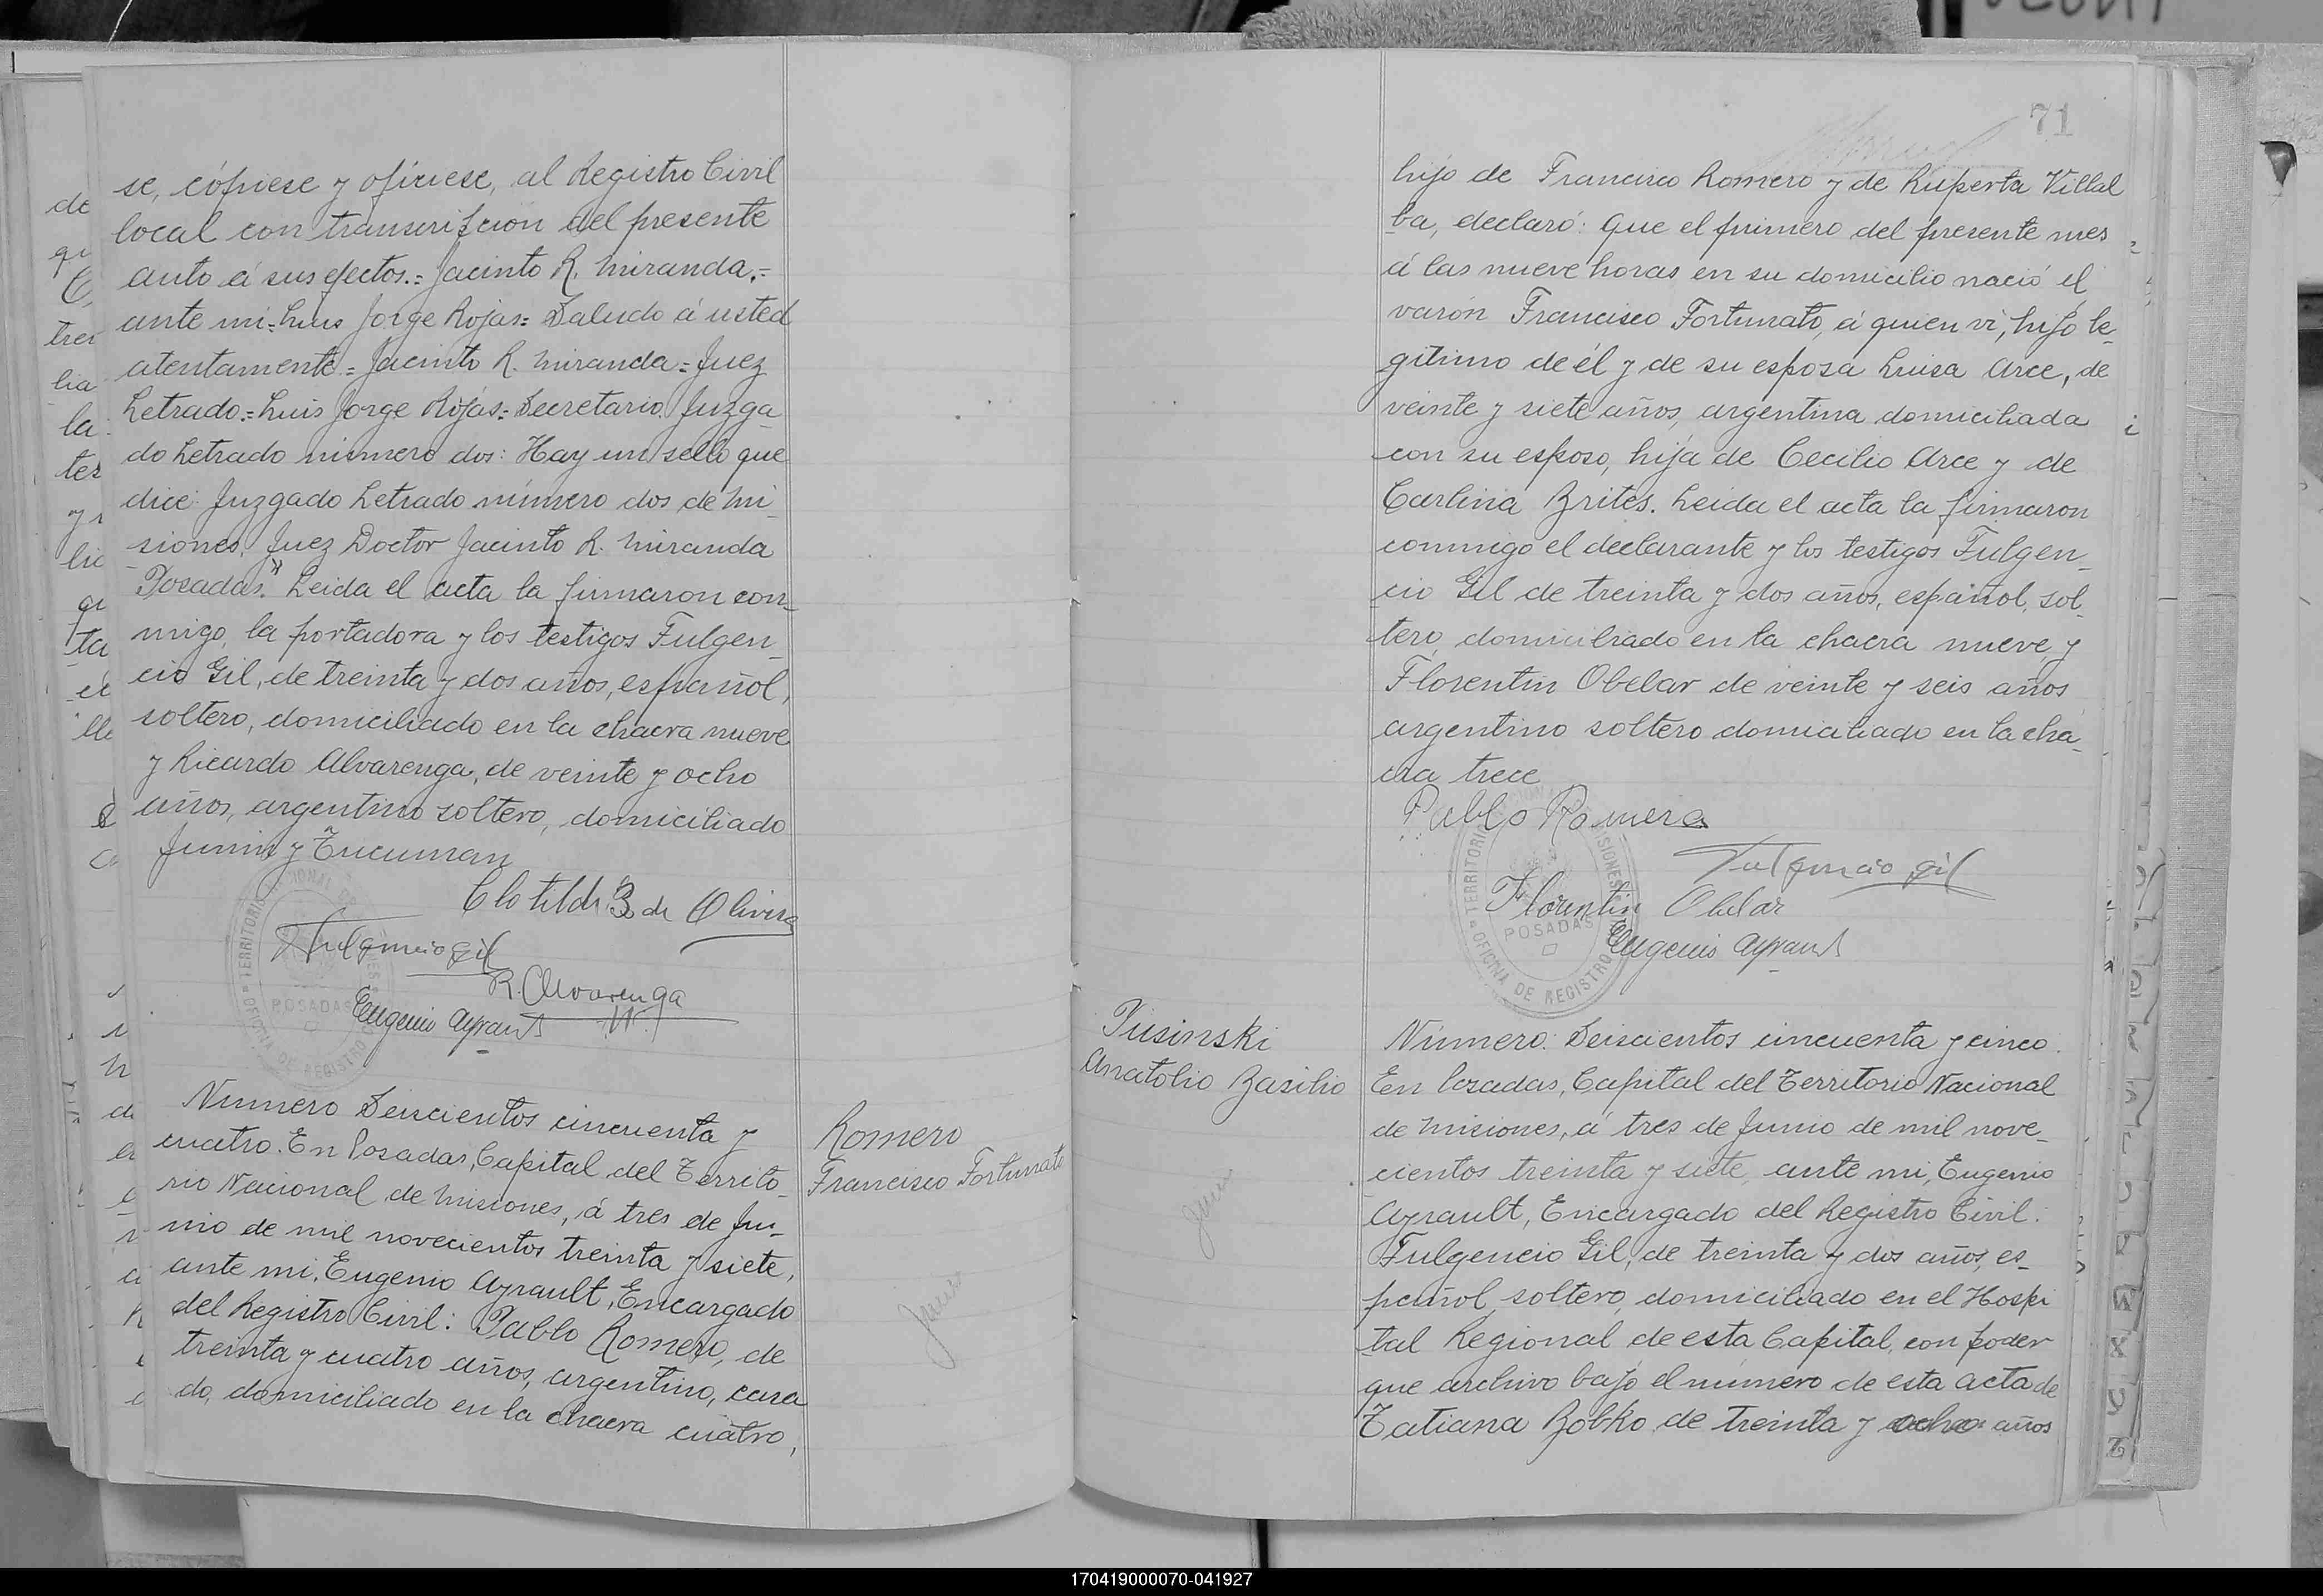 se, cópiese y ofíciese, al Registro Civil
local con transcripcion del presente
auto á sus efectos.= Jacinto R. Miranda.=
ante mi= Luis Jorge Rojas= Saludo á usted
atentamente= Jacinto R. Miranda= Juez
Letrado.= Luis Jorge Rojas= Secretario. Juzga-
do Letrado número dos: Hay un sello que
dice: Juzgado Letrado número dos de Mi-
siones. Juez Doctor Jacinto R. Miranda
Posadas." Leida el acta la firmaron con-
migo, la portadora y los testigos Fulgen-
cio Gil, de treinta y dos años, español,
soltero, domiciliado en la chacra nueve
y Ricardo Alvarenga, de veinte y ocho
años, argentino soltero, domiciliado
Junin y Tucuman
Clotilde B de Olivera
Fulgencio gil
R. Alvarenga
Eugenio Ayrault
TERRITORIO NACIONAL DE MISIONES
POSADAS
OFICINA DE REGISTRO
Número Seiscientos cincuenta y
cuatro. En Posadas, Capital del Territo-
rio Nacional de Misiones, á tres de Ju-
nio de mil novecientos treinta y siete,
ante mi, Eugenio Ayrault, Encargado
del Registro Civil: Pablo Romero, de
treinta y cuatro años, argentino, casa
do, domiciliado en la chacra cuatro,
Romero
Francisco Fortunato
Junio
71
hijo de Francisco Romero y de Ruperta Villal
ba, declaró: Que el primero del presente mes
á las nueve horas en su domicilio nació el
varón Francisco Fortunato, á quien vi, hijo le-
gitimo de él y de su esposa Luisa Arce, de
veinte y siete años, argentina domiciliada
con su esposo, hija de Cecilio Arce y de
Carlina Brites. Leida el acta la firmaron
conmigo el declarante y los testigos Fulgen-
cio Gil de treinta y dos años, español, sol
tero, domiciliado en la chacra nueve y
Florentin Obelar de veinte y seis años
argentino soltero domiciliado en la cha-
cra trece
Pablo Romero
Fulgencio gil
Florentin Obelar
Eugenio Ayrault
TERRITORIO MISIONES
POSADAS
OFICINA DE REGISTRO
Pusinski
Anatolio Basilio
Junio
Número: Seiscientos cincuenta y cinco.
En Posadas, Capital del Territorio Nacional
de Misiones, á tres de Junio de mil nove-
cientos treinta y siete, ante mi, Eugenio
Ayrault, Encargado del Registro Civil:
Fulgencio Gil, de treinta y dos años, es-
pañol, soltero, domiciliado en el Hospi
tal Regional de esta Capital, con poder
que archivo bajo el número de esta acta de
Tatiana Bobko de treinta y ocho años
W
X
Y
Z
170419000070-041927